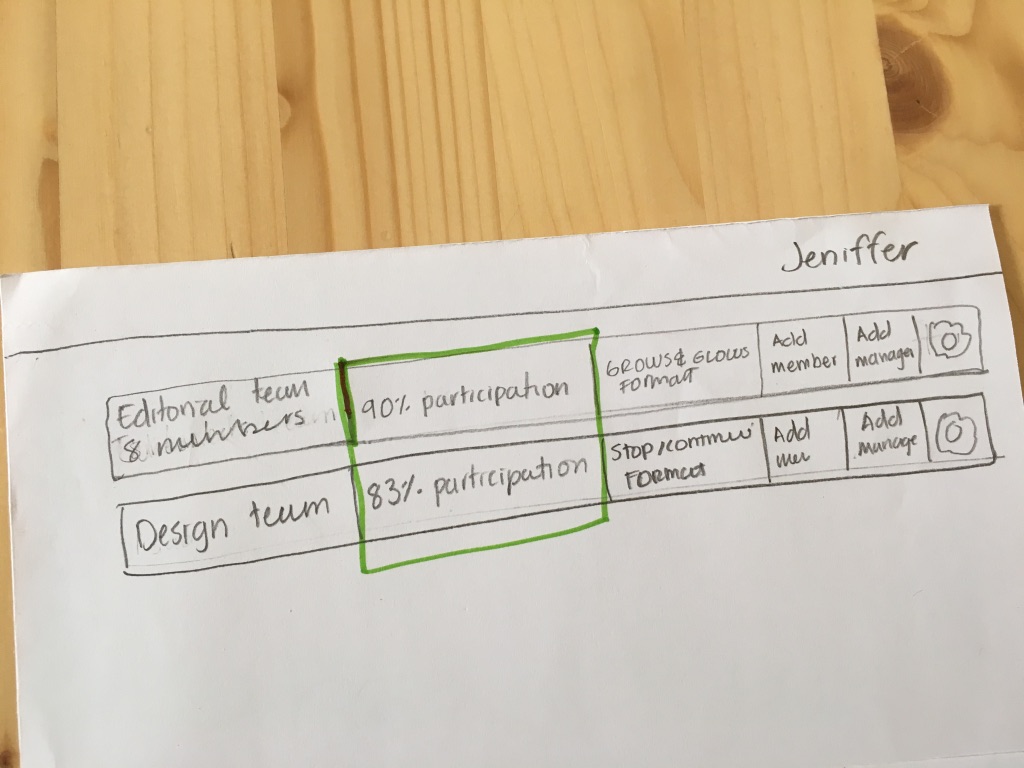 Jeniffer
Editorial team
8 members
90% participation
GROWS & GLOWS
FORMAT
Add
member
Add
manager
Design team
83% participation
STOP/
FORMAT
Add
Add
manage